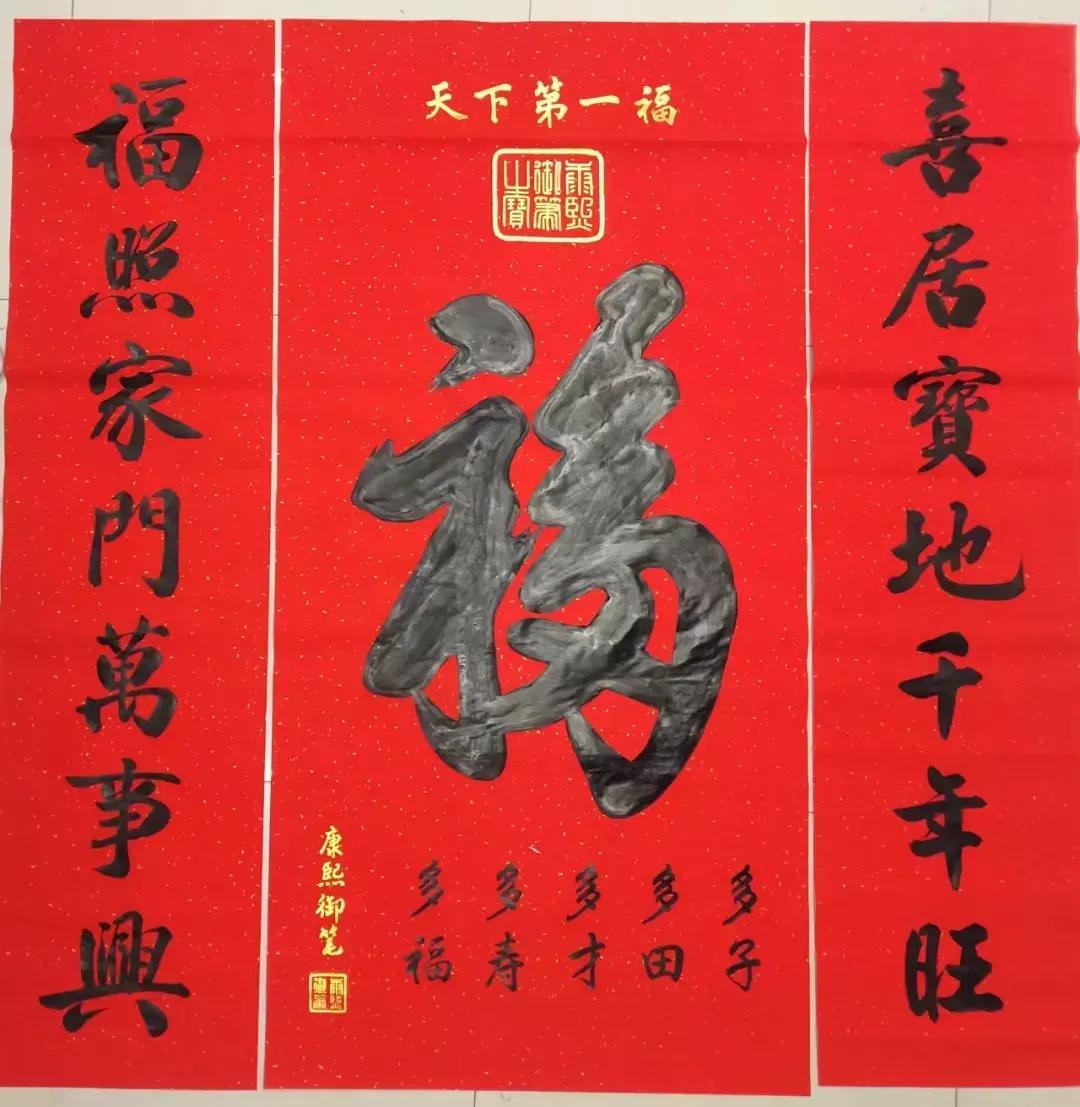 喜居寶地千年旺
天下第一福
康熙御筆之寶
福
多子
多田
多才
多寿
多福
康熙御笔
康熙御筆
福照家門萬事興